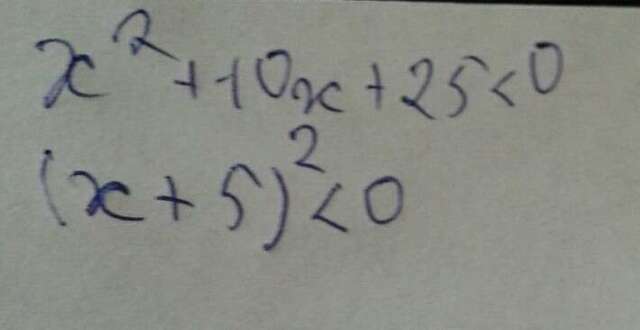 x² + 10x + 25 < 0
(x + 5)² < 0